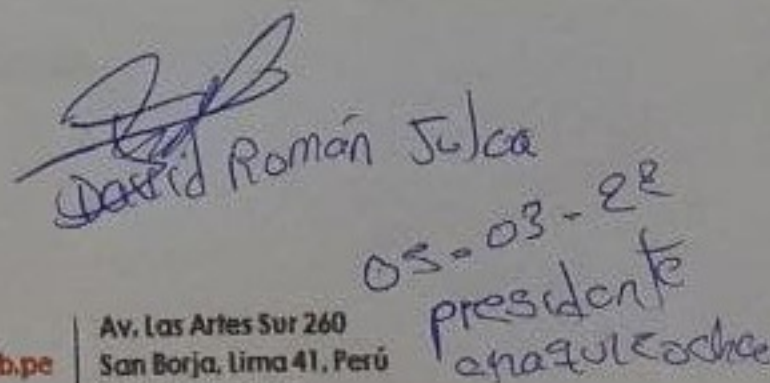 David Román Julca
05-03-22
presidente
chaquicocha
b.pe
Av. Las Artes Sur 260
San Borja, Lima 41, Perú